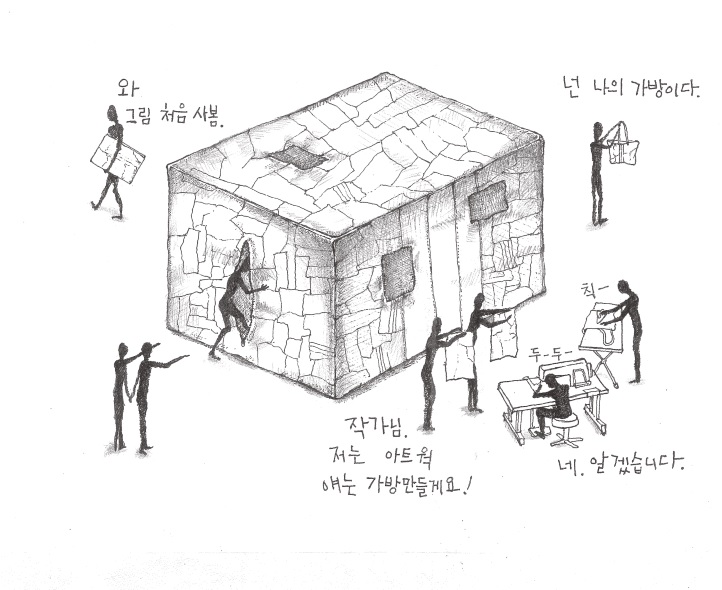 와
그림 처음 사봄.
넌 나의 가방이다.
칙-
두-두-
작가님.
저는 아트웍
얘는 가방만들게요!
네. 알겠습니다.